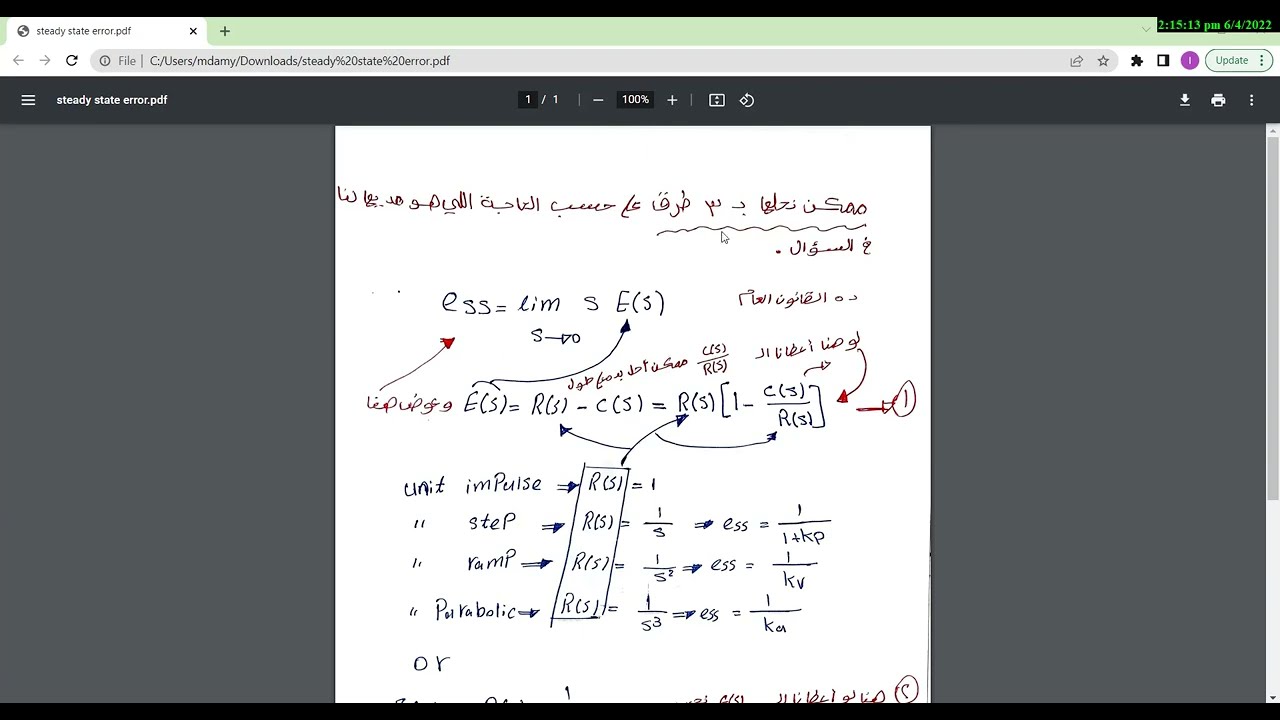 steady state error.pdf
2:15:13 pm 6/4/2022
File | C:/Users/mdamy/Downloads/steady%20state%20error.pdf
Update
steady state error.pdf
1 / 1
100%
ممكن نحلها بـ ٣ طرق على حسب الحاجة اللي هو مديها لنا
في السؤال .
ess = lim s E(s)
s→0
ده القانون العام
لو هنا أعطانا الـ C(s)/R(s) ممكن أحل بيه على طول
وعوض هنا E(s) = R(s) - C(s) = R(s) [1 - C(s)/R(s)] → ①
unit imPulse ⇒ R(s) = 1
" steP ⇒ R(s) = 1/s ⇒ ess = 1/1+kp
" ramP ⇒ R(s) = 1/s² ⇒ ess = 1/kv
" Parabolic ⇒ R(s) = 1/s³ ⇒ ess = 1/ka
or
هنا لو أعطانا الـ ②